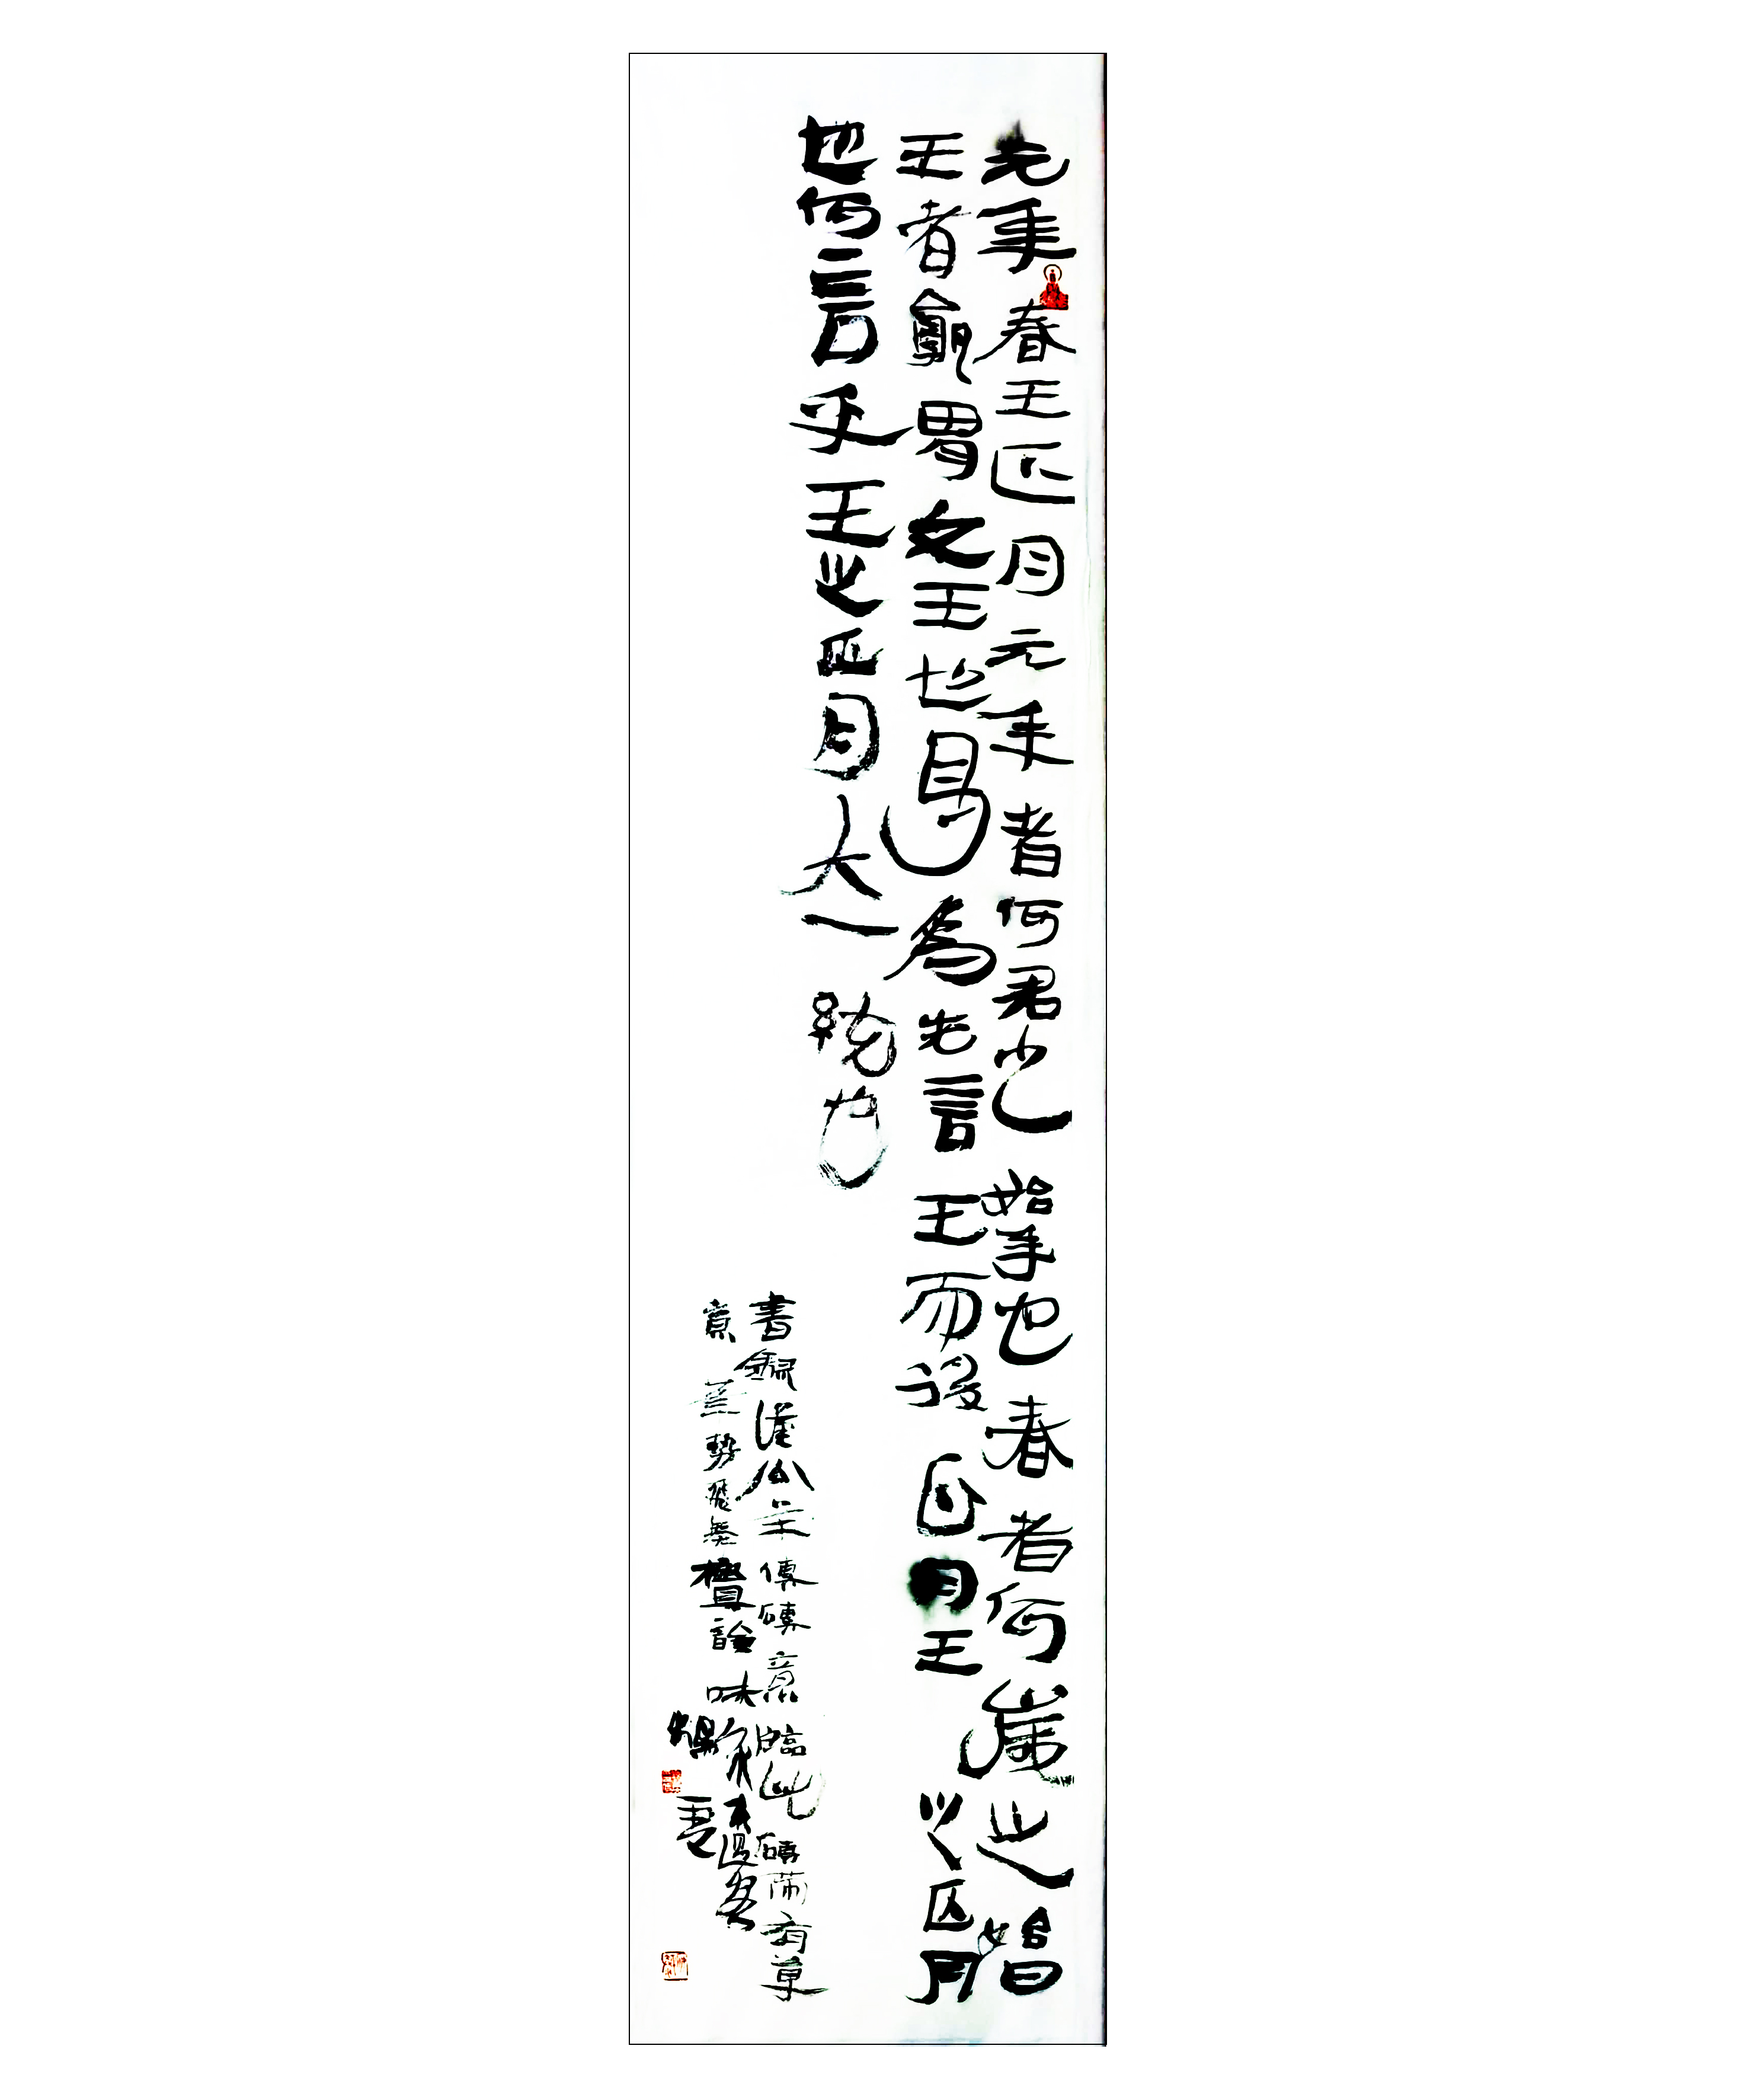 元年春王正月元年者何君之始年也春者何歲之始
王者孰胃文王也曷為先言王而後正月王之正月
也何言乎王之正月大一統也
書錄漢公羊傳磚意臨此磚有草
意勢飛論味